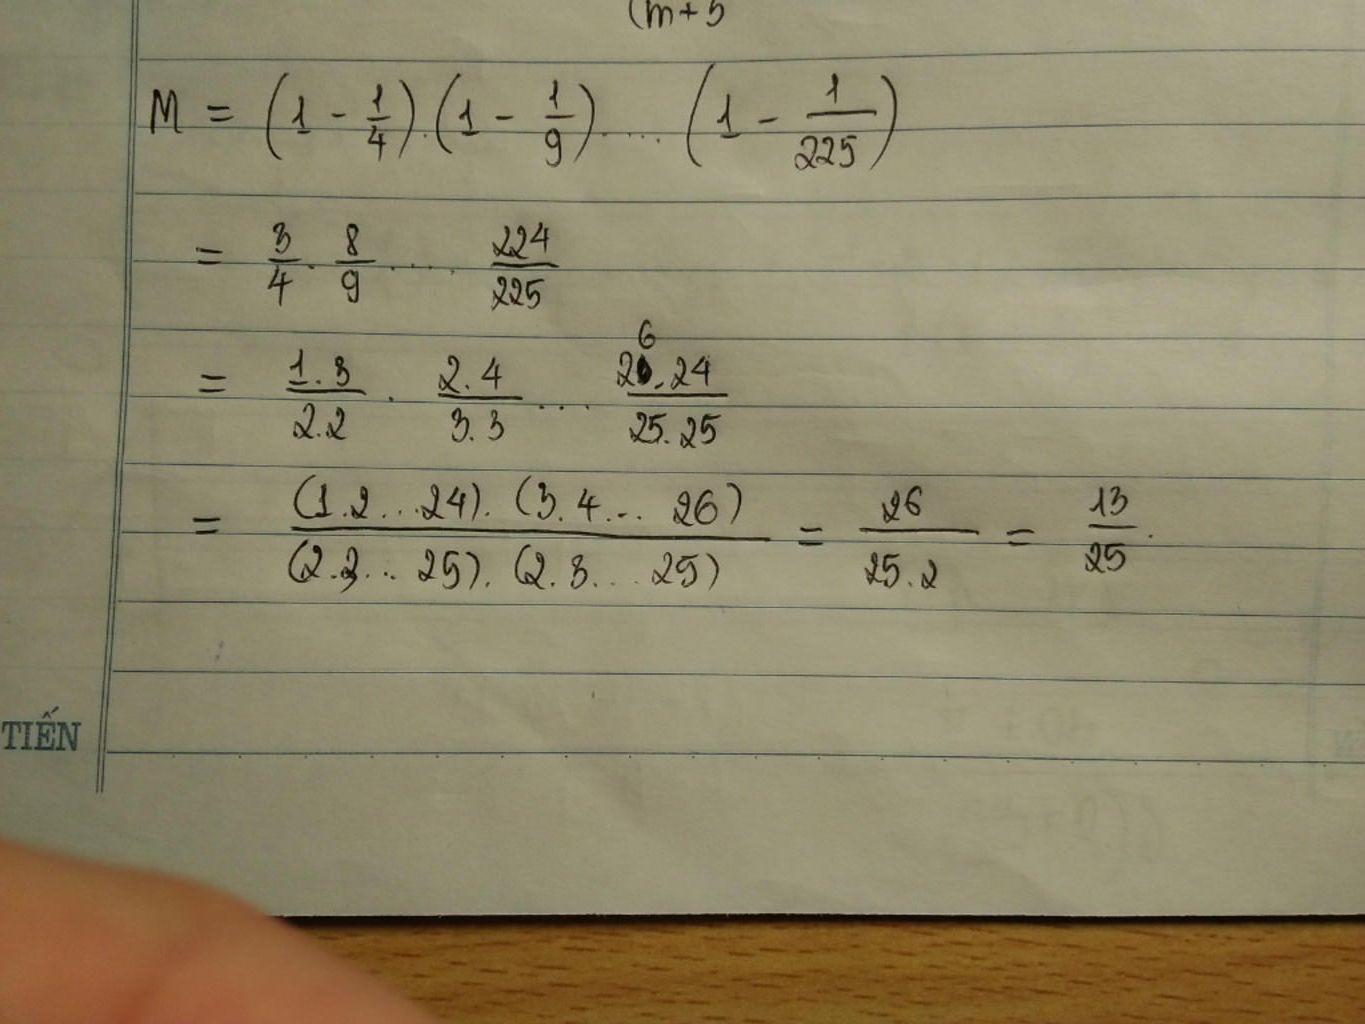 (m+5
M = (1 - 1/4).(1 - 1/9)....(1 - 1/225)
= 3/4 . 8/9 ..... 224/225
= 1.3/2.2 . 2.4/3.3 ... 26.24/25.25
= (1.2...24).(3.4... 26)/(2.3... 25).(2.3... 25) = 26/25.2 = 13/25.
TIẾN